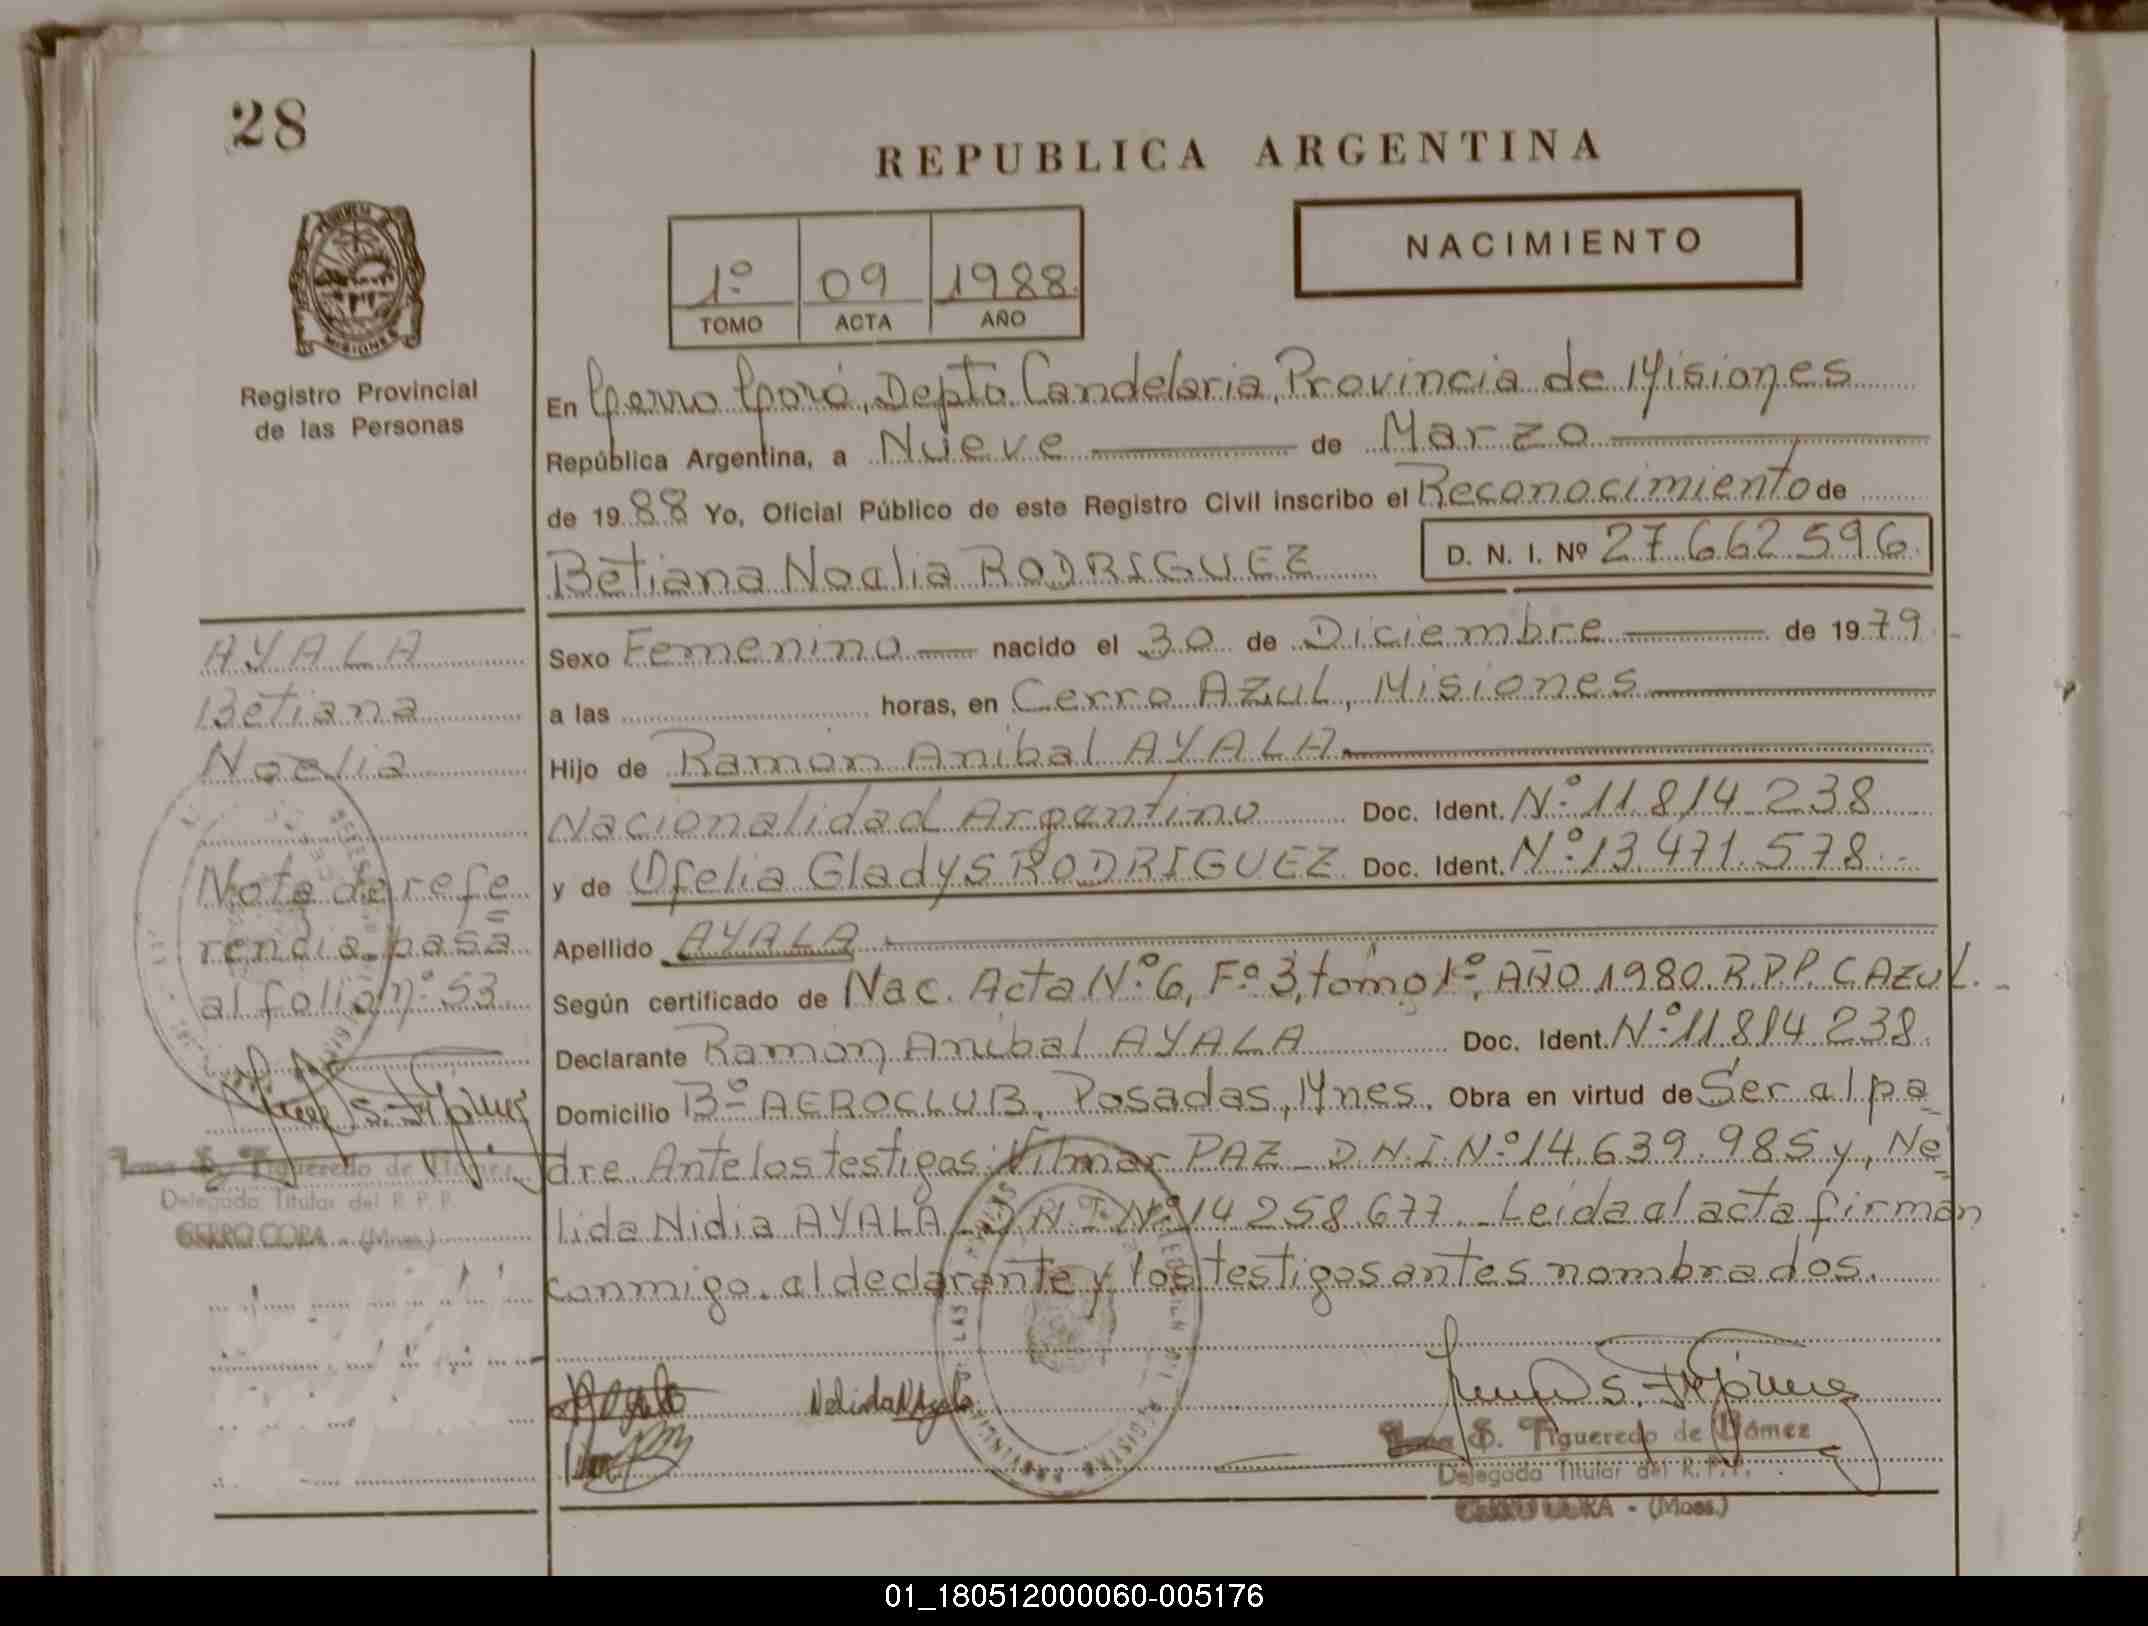 28
REPUBLICA ARGENTINA
NACIMIENTO
1º 09 1988
TOMO ACTA AÑO
Registro Provincial
de las Personas
En Cerro Corá, Depto. Candelaria, Provincia de Misiones
República Argentina, a Nueve de Marzo
de 1988 Yo, Oficial Público de este Registro Civil inscribo el Reconocimiento de
Betiana Noelia RODRIGUEZ D. N. I. Nº 27.662.596
Sexo Femenino nacido el 30 de Diciembre de 1979
a las horas, en Cerro Azul, Misiones
Hijo de Ramón Anibal AYALA
Nacionalidad Argentino Doc. Ident. Nº 11.814.238
y de Ofelia Gladys RODRIGUEZ Doc. Ident. Nº 13.471.578.-
Apellido AYALA
Según certificado de Nac. Acta Nº 6, Fº 3, tomo 1º, AÑO 1980 R.P.P. C. AZUL.-
Declarante Ramón Anibal AYALA Doc. Ident. Nº 11.814.238.
Domicilio Bº AEROCLUB, Posadas, Mnes. Obra en virtud de Ser al pa
dre. Ante los testigos: Vilmar PAZ - D.N.I. Nº 14.639.985 y, Ne
lida Nidia AYALA - D.N.I. Nº 14.258.677. - Leida al acta firman
conmigo, al declarante y los testigos antes nombrados.
AYALA
Betiana
Noelia
Nota de refe
rencia pasa
al folio nº 53
S. Figueredo de Gómez
Delegada Titular del R. P. P.
CERRO CORA - (Mnes.)
Nelida N Ayala
S. Figueredo de Gómez
Delegada Titular del R. P. P.
CERRO CORA - (Mnes.)
01_180512000060-005176